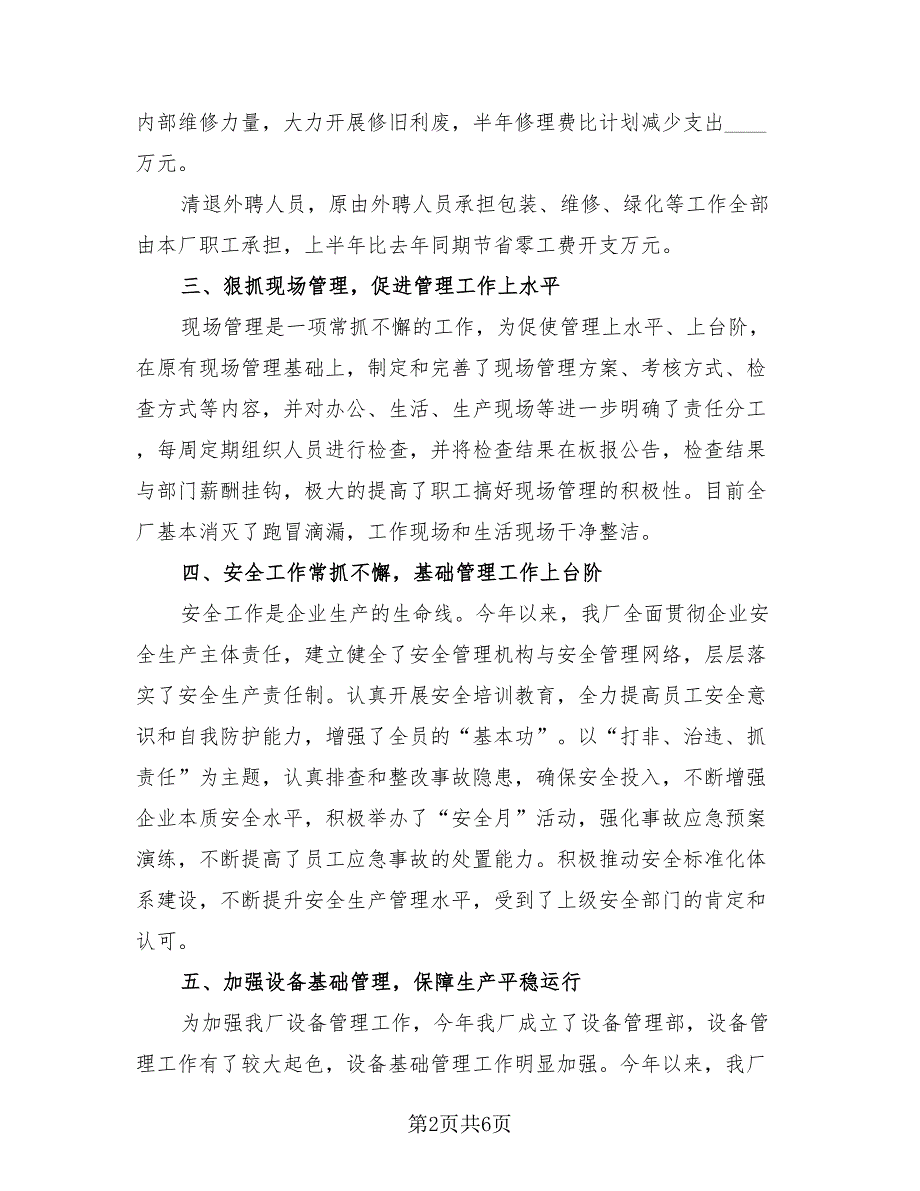 内部维修力量，大力开展修旧利废，半年修理费比计划减少支出____
万元。
清退外聘人员，原由外聘人员承担包装、维修、绿化等工作全部
由本厂职工承担，上半年比去年同期节省零工费开支万元。
三、狠抓现场管理，促进管理工作上水平
现场管理是一项常抓不懈的工作，为促使管理上水平、上台阶，
在原有现场管理基础上，制定和完善了现场管理方案、考核方式、检
查方式等内容，并对办公、生活、生产现场等进一步明确了责任分工
，每周定期组织人员进行检查，并将检查结果在板报公告，检查结果
与部门薪酬挂钩，极大的提高了职工搞好现场管理的积极性。目前全
厂基本消灭了跑冒滴漏，工作现场和生活现场干净整洁。
四、安全工作常抓不懈，基础管理工作上台阶
安全工作是企业生产的生命线。今年以来，我厂全面贯彻企业安
全生产主体责任，建立健全了安全管理机构与安全管理网络，层层落
实了安全生产责任制。认真开展安全培训教育，全力提高员工安全意
识和自我防护能力，增强了全员的“基本功”。以“打非、治违、抓
责任”为主题，认真排查和整改事故隐患，确保安全投入，不断增强
企业本质安全水平，积极举办了“安全月”活动，强化事故应急预案
演练，不断提高了员工应急事故的处置能力。积极推动安全标准化体
系建设，不断提升安全生产管理水平，受到了上级安全部门的肯定和
认可。
五、加强设备基础管理，保障生产平稳运行
为加强我厂设备管理工作，今年我厂成立了设备管理部，设备管
理工作有了较大起色，设备基础管理工作明显加强。今年以来，我厂
第2页共6页